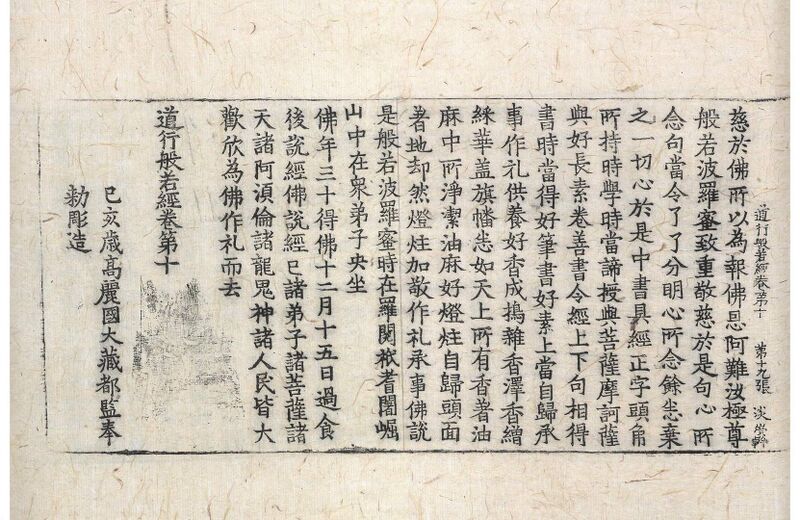 道行般若經卷第十　第十九張　淡
慈於佛所以為報佛恩阿難汝極尊
般若波羅蜜致重敬慈於是句心所
念句當令了了分明心所念餘悉棄
之一切心於是中書具經正字頭角
所持時學時當諦授與菩薩摩訶薩
與好長素卷善書令經上下句相得
書時當得好筆書好素上當自歸承
事作礼供養好香成搗雜香澤香繒
綵華盖旗幡悉如天上所有香著油
麻中所淨潔油麻好燈炷自歸頭面
著地却然燈炷加敬作礼承事佛說
是般若波羅蜜時在羅閱祇耆闍崛
山中在衆弟子央坐
佛年三十得佛十二月十五日過食
後說經佛說經已諸弟子諸菩薩諸
天諸阿湏倫諸龍鬼神諸人民皆大
歡欣為佛作礼而去
道行般若經卷第十
己亥歲高麗國大藏都監奉
勅彫造